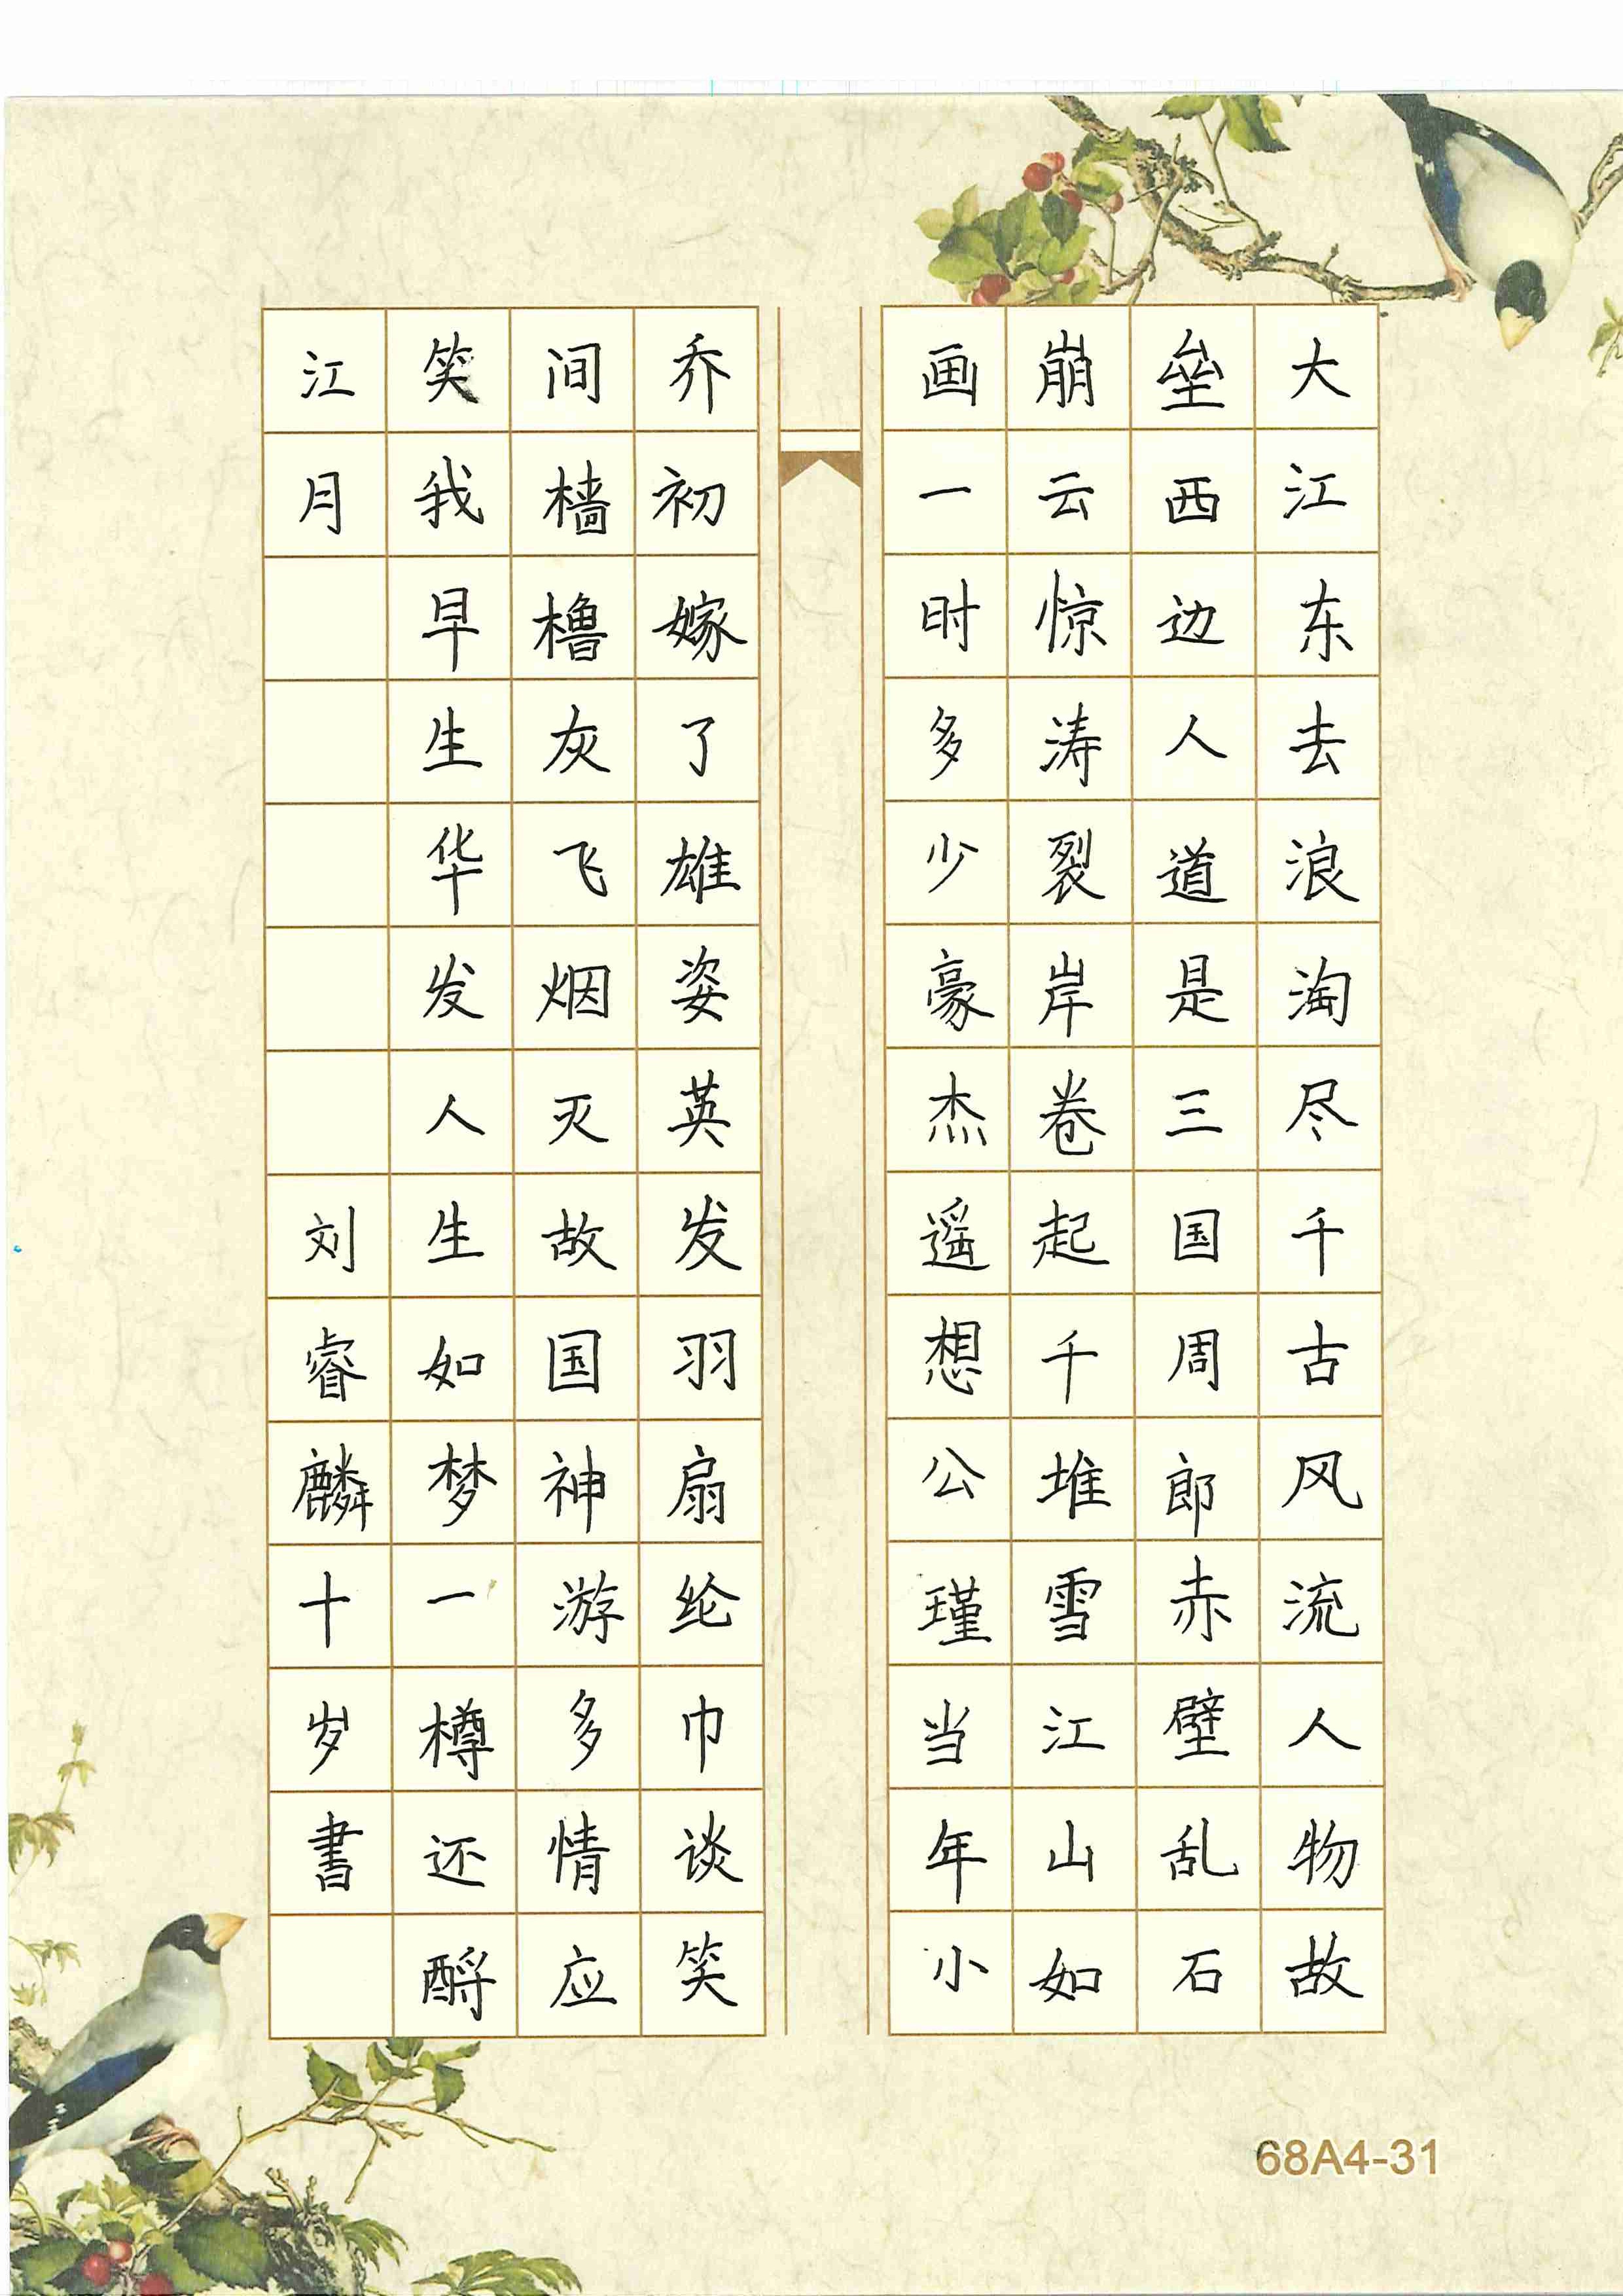 大江东去浪淘尽千古风流人物故
垒西边人道是三国周郎赤壁乱石
崩云惊涛裂岸卷起千堆雪江山如
画一时多少豪杰遥想公瑾当年小
乔初嫁了雄姿英发羽扇纶巾谈笑
间樯橹灰飞烟灭故国神游多情应
笑我早生华发人生如梦一樽还酹
江月
刘睿麟十岁書
68A4-31